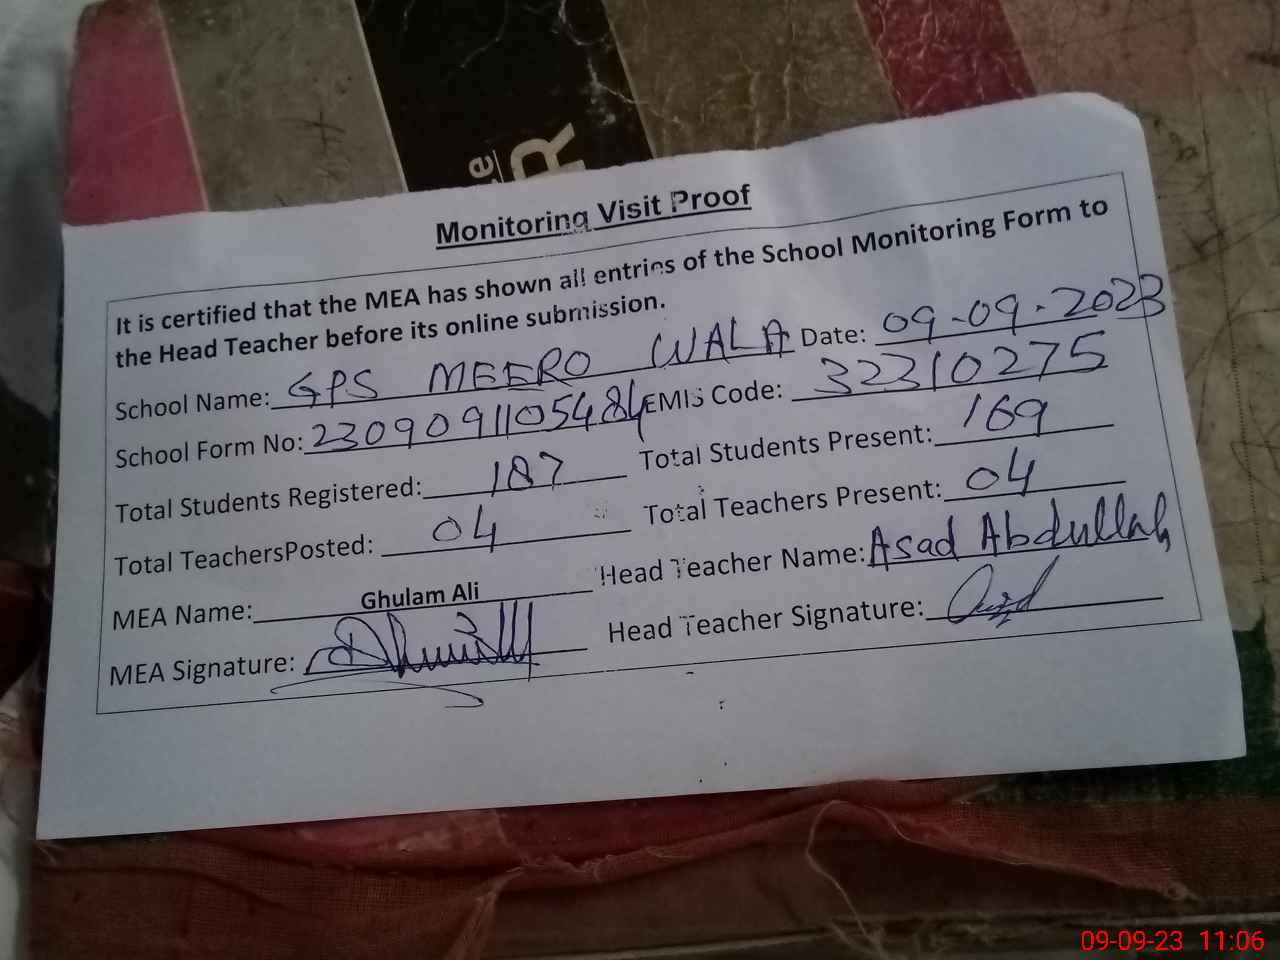 Monitoring Visit Proof
It is certified that the MEA has shown all entries of the School Monitoring Form to
the Head Teacher before its online submission.
School Name: GPS MEERO WALA Date: 09-09-2023
School Form No: EMIS Code: 32310275
Total Students Registered: 187 Total Students Present: 169
Total TeachersPosted: 04 Total Teachers Present: 04
MEA Name: Ghulam Ali Head Teacher Name: Asad Abdullah
MEA Signature: Head Teacher Signature:
09-09-23 11:06